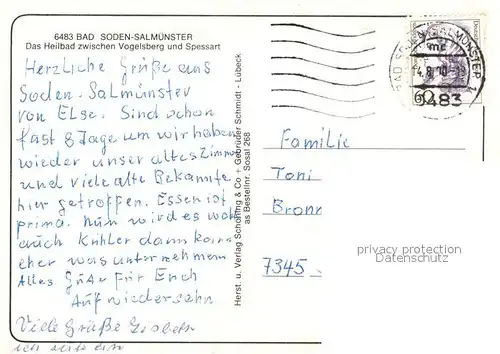 6483 BAD SODEN-SALMÜNSTER
Das Heilbad zwischen Vogelsberg und Spessart
Herzliche Grüße aus
Soden-Salmünster
von Else. Sind schon
fast 8 Tage um wir haben
wieder unser altes Zimmer
und viele alte Bekannte
hier getroffen. Essen ist
prima. Nun wird es wohl
auch Kühler dann kann
eher was unternehmen
Alles Gute Für Euch
Auf wiedersehn
Viele Grüße
Herst. u. Verlag Schöning & Co + Gebrüder Schmidt - Lübeck
as Bestellnr. Sosal 268
BAD SODEN-SALMÜNSTER 1
mc
6483
60
Familie
Toni
Bronn
7345
privacy protection
Datenschutz